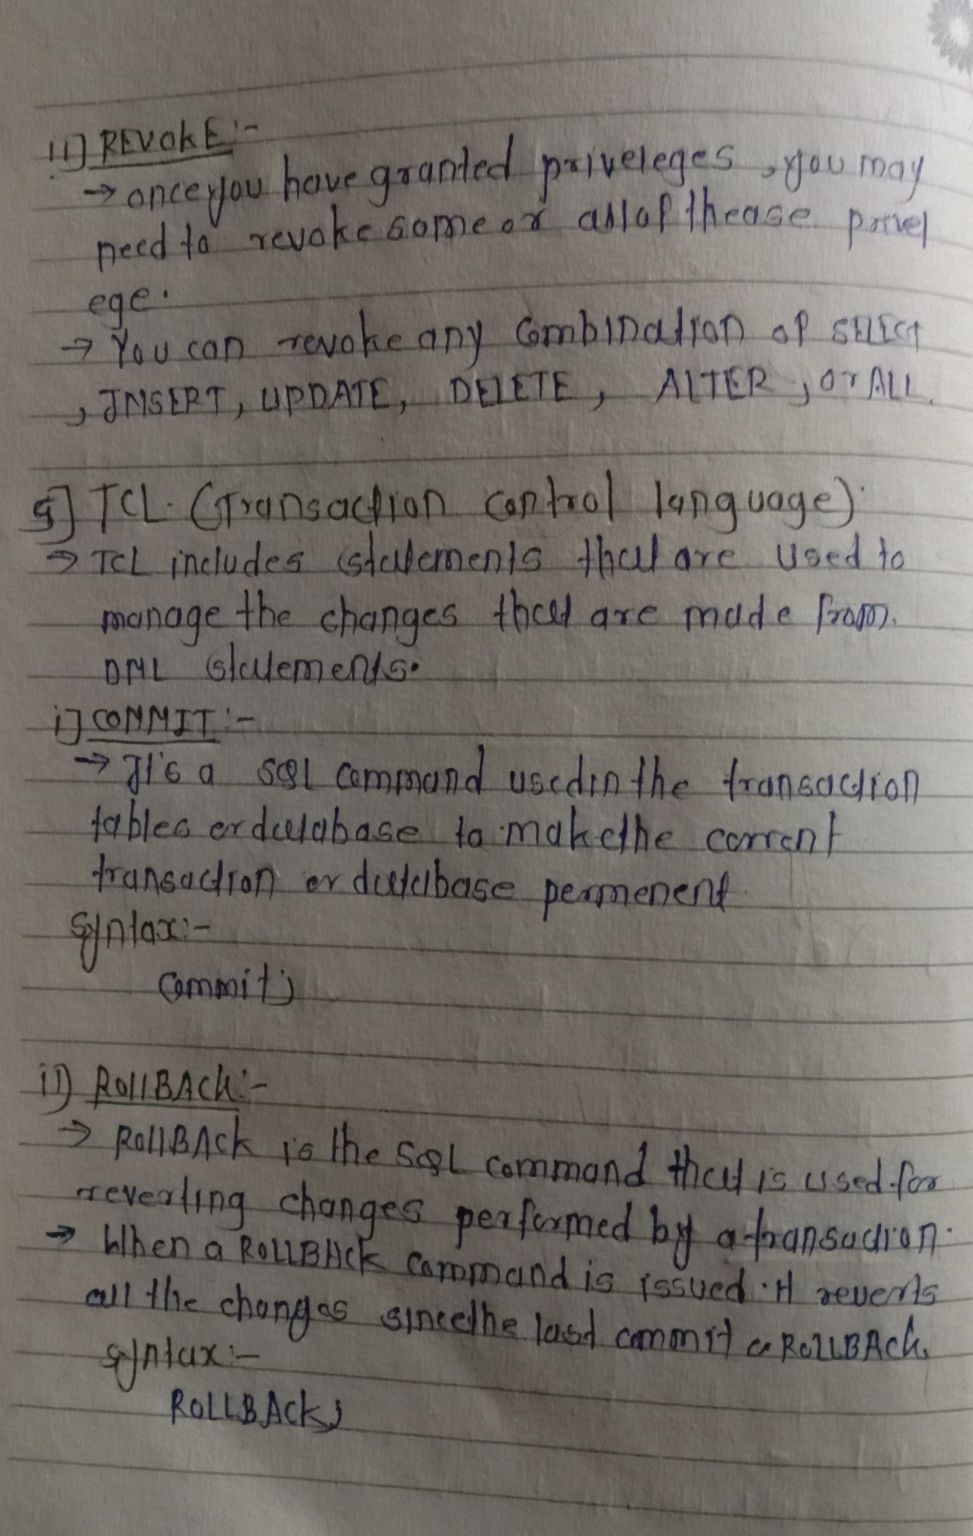 ii] REVOKE :-
→ once you have granted priveleges , you may
need to revoke some or all of thease privel
ege.
→ You can revoke any combination of SELECT
, INSERT, UPDATE, DELETE, ALTER, or ALL.
5] TCL. (Transaction control language).
→ TCL includes statements that are used to
manage the changes that are made from.
DML statements.
i] COMMIT :-
→ It's a SQL command used in the transaction
tables or database to make the corrent
transaction or database permenent
Syntax:-
Commit;
ii) ROLLBACK:-
→ ROLLBACK is the SQL command that is used for
reverting changes performed by a transaction.
→ When a ROLLBACK command is issued it reverts
all the changes since the last commit or ROLLBACK.
Syntax:-
ROLLBACK;